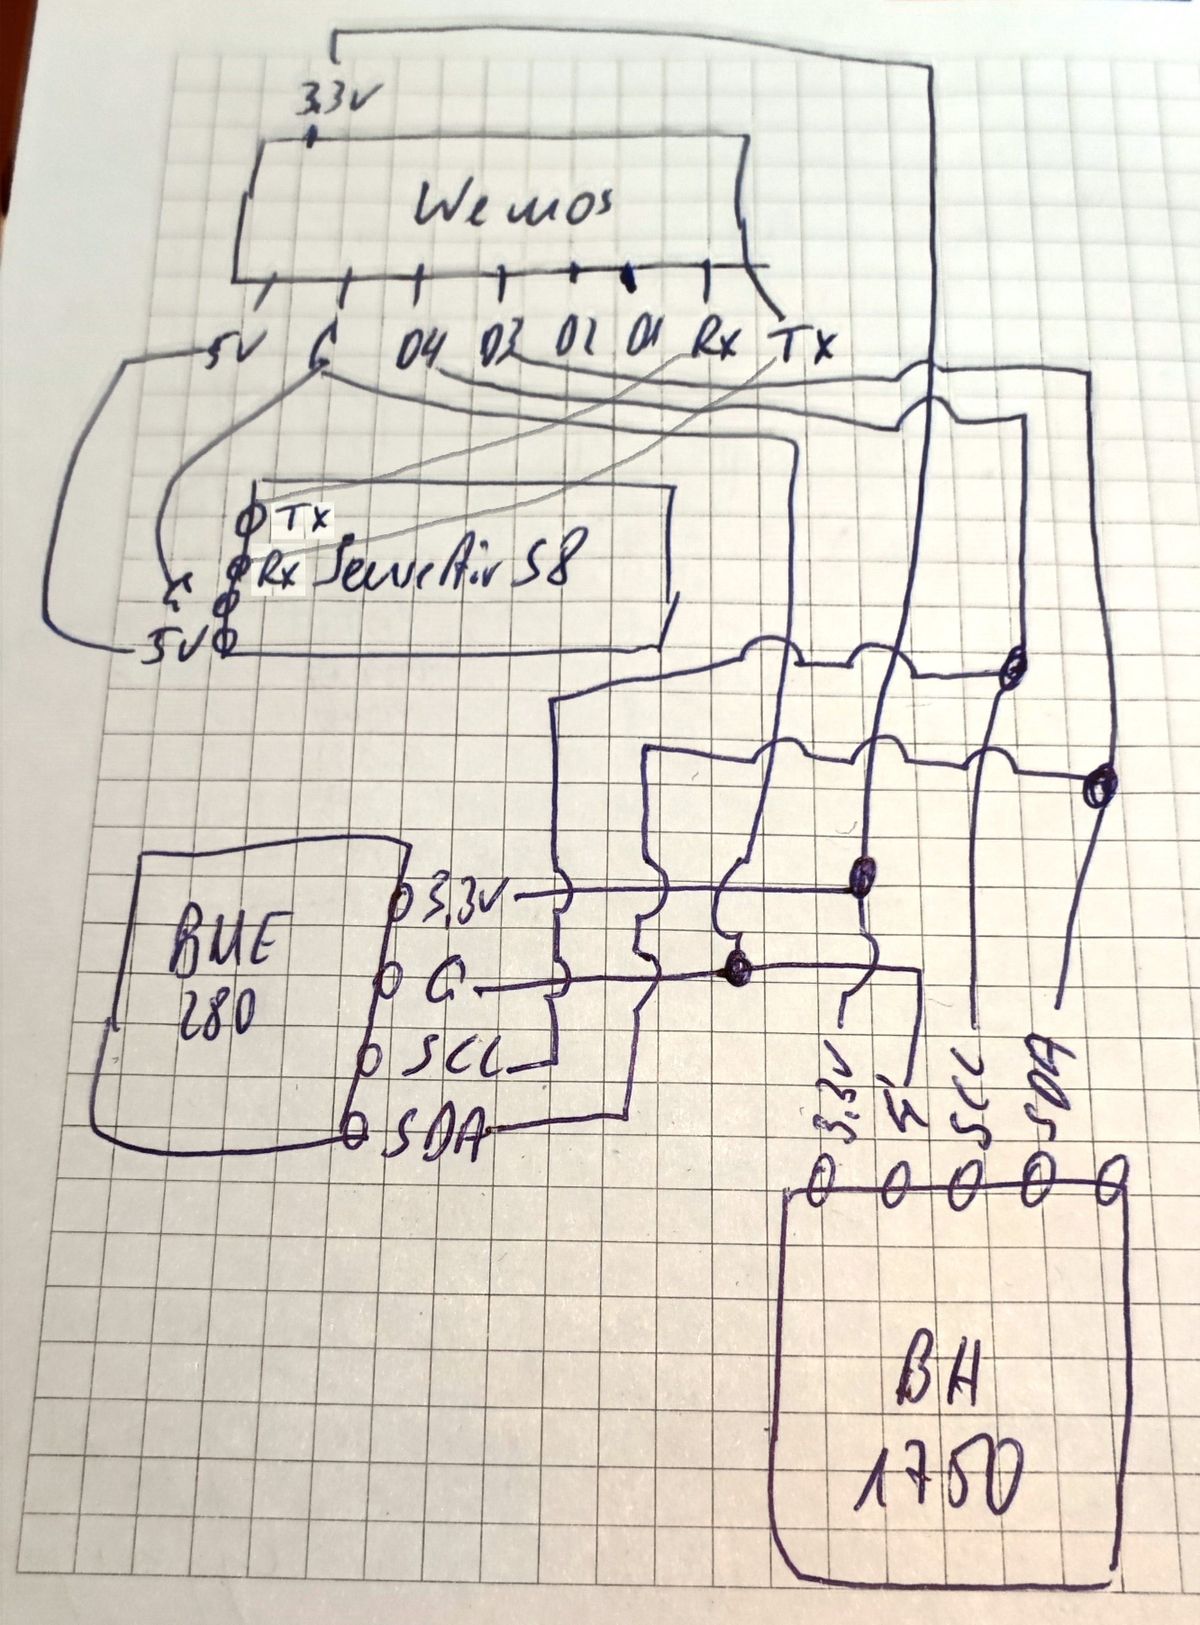 3.3V
Wemos
5V G D4 D3 D2 D1 Rx Tx
Tx
Rx SenseAir S8
G
5V
BME
280
3.3V
G
SCL
SDA
3.3V
G
SCL
SDA
BH
1750